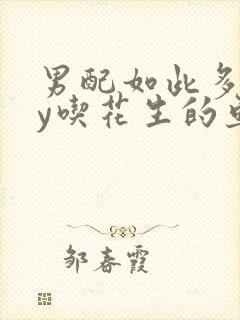 男配如此多
y喫花生的
邹春霞